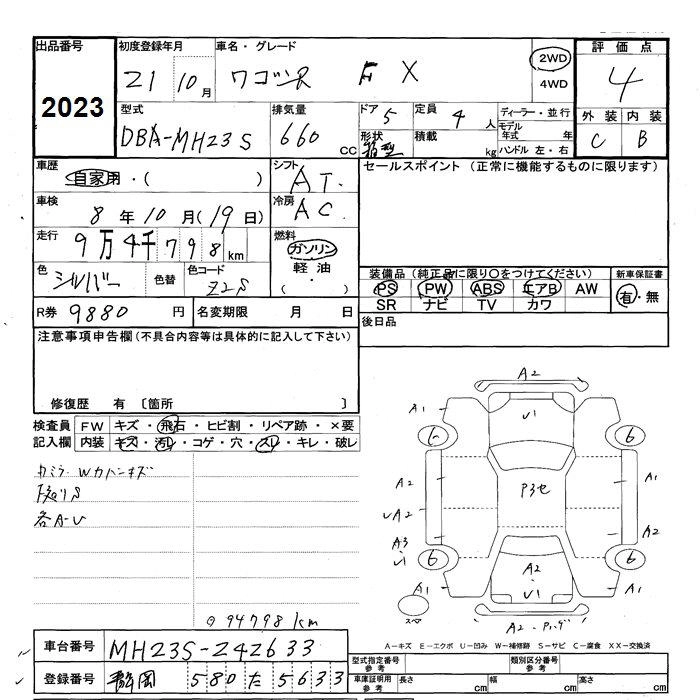 出品番号 初度登録年月 車名・グレード 評価点
2023 21 10月 ワゴンR FX 2WD 4WD 4
型式 排気量 ドア 5 定員 4人 ディーラー・並行 外装 内装
DBA-MH23S 660 CC 形状 箱型 積載 kg モデル年式 年 ハンドル 左・右 C B
車歴 自家用・( ) シフト AT. セールスポイント (正常に機能するものに限ります)
車検 8年10月(19日) 冷房 AC
走行 9万4千798km 燃料 ガソリン 軽油・( )
色 シルバー 色替 色コード Z2S 装備品(純正品に限り○をつけてください) 新車保証書
PS PW ABS エアB AW 有・無
SR ナビ TV カワ
R券 9880円 名変期限 月 日 後日品
注意事項申告欄(不具合内容等は具体的に記入して下さい)
修復歴 有 〔箇所 〕
検査員 FW キズ・飛石・ヒビ割・リペア跡・×要
記入欄 内装 キズ・汚レ・コゲ・穴・スレ・キレ・破レ
各A-U
A2
A1 U1 A1
6 6
A2 P3セ A1
UA2 A2
A3
U1
6 6
A1 A2・U1 A1
A2
⊙94798km
A-キズ E-エクボ U-凹み W-補修跡 S-サビ C-腐食 XX-交換済
車台番号 MH23S-242633 型式指定番号 参考 類別区分番号 参考
登録番号 静岡 580 た 5633 車庫証明用 参考 長さ cm 幅 cm 高さ cm